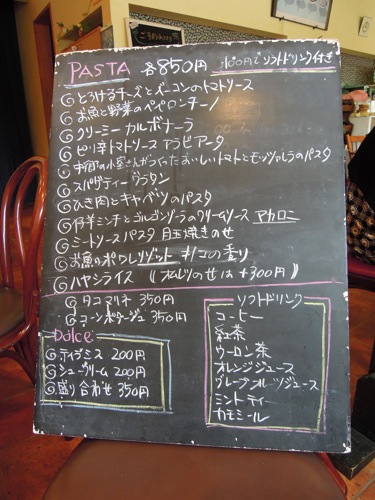 PASTA 各850円 +100円でソフトドリンク付き
とろけるチーズとベーコンのトマトソース
お魚と野菜のペペロンチーノ
クリーミーカルボナーラ
ピリ辛トマトソース アラビアータ
小室さんがつくったおいしいトマトとモッツァレラのパスタ
スパゲティーグラタン
ひき肉とキャベツのパスタ
仔羊ミンチとゴルゴンゾーラのクリームソース マカロニ
ミートソースパスタ 目玉焼きのせ
お魚のポロレリゾット キノコの香り
ハヤシライス (オムレツのせは+300円)
タコマリネ 350円
コーンポタージュ 350円
Dolce
ティラミス 200円
シュークリーム 200円
盛り合わせ 350円
ソフトドリンク
コーヒー
紅茶
ウーロン茶
オレンジジュース
グレープフルーツジュース
ミントティ
カモミール